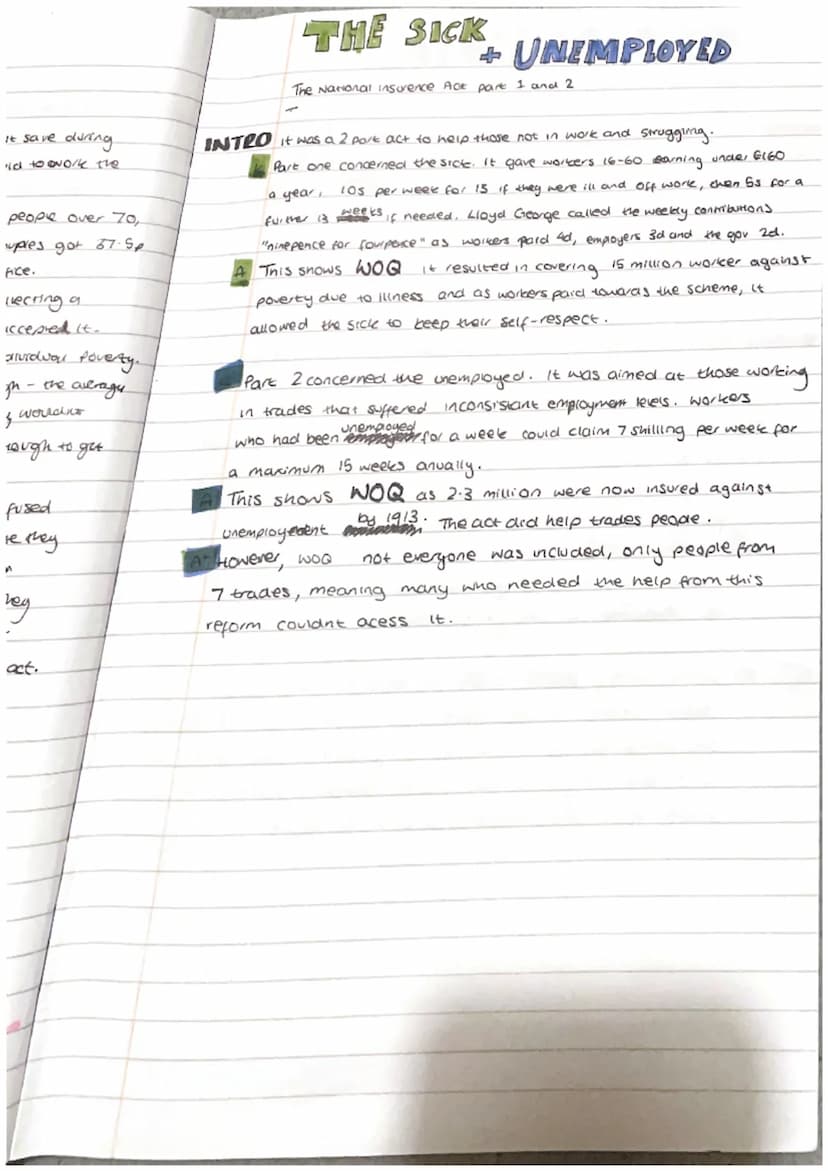 THE SICK
+ UNEMPLOYED
The National insurence Act part 1 and 2
INTRO it was a 2 part act to help those not in work and struggling.
K Part one concerned the sick. It gave workers 16-60 earning under £160
a year, 10s per week for 13 if they were ill and off work, then 5s for a
further 13 weeks if needed. Lloyd George called the weekly contributions
"ninepence for fourpence" as workers paid 4d, employers 3d and the gov 2d.
A This shows WOQ it resulted in covering 15 million worker against
poverty due to illness and as workers paid towards the scheme, it
allowed the sick to keep their self-respect.
Part 2 concerned the unemployed. It was aimed at those working
in trades that suffered inconsistant employment levels. Workers
who had been unemployed for a week could claim 7 shilling per week for
a maximum 15 weeks anually.
A This shows WOQ as 2.3 million were now insured against
unemployement by 1913. The act did help trades people.
A+ However, WOQ not everyone was included, only people from
7 trades, meaning many who needed the help from this
reform couldnt acess it.
it save during
to work the
people over 70,
uples got 37.5p
ice.
uecting a
accepted it.
dividual poverty.
gh - the average
wouldnt
rough to get
fused
re they
hey
act.